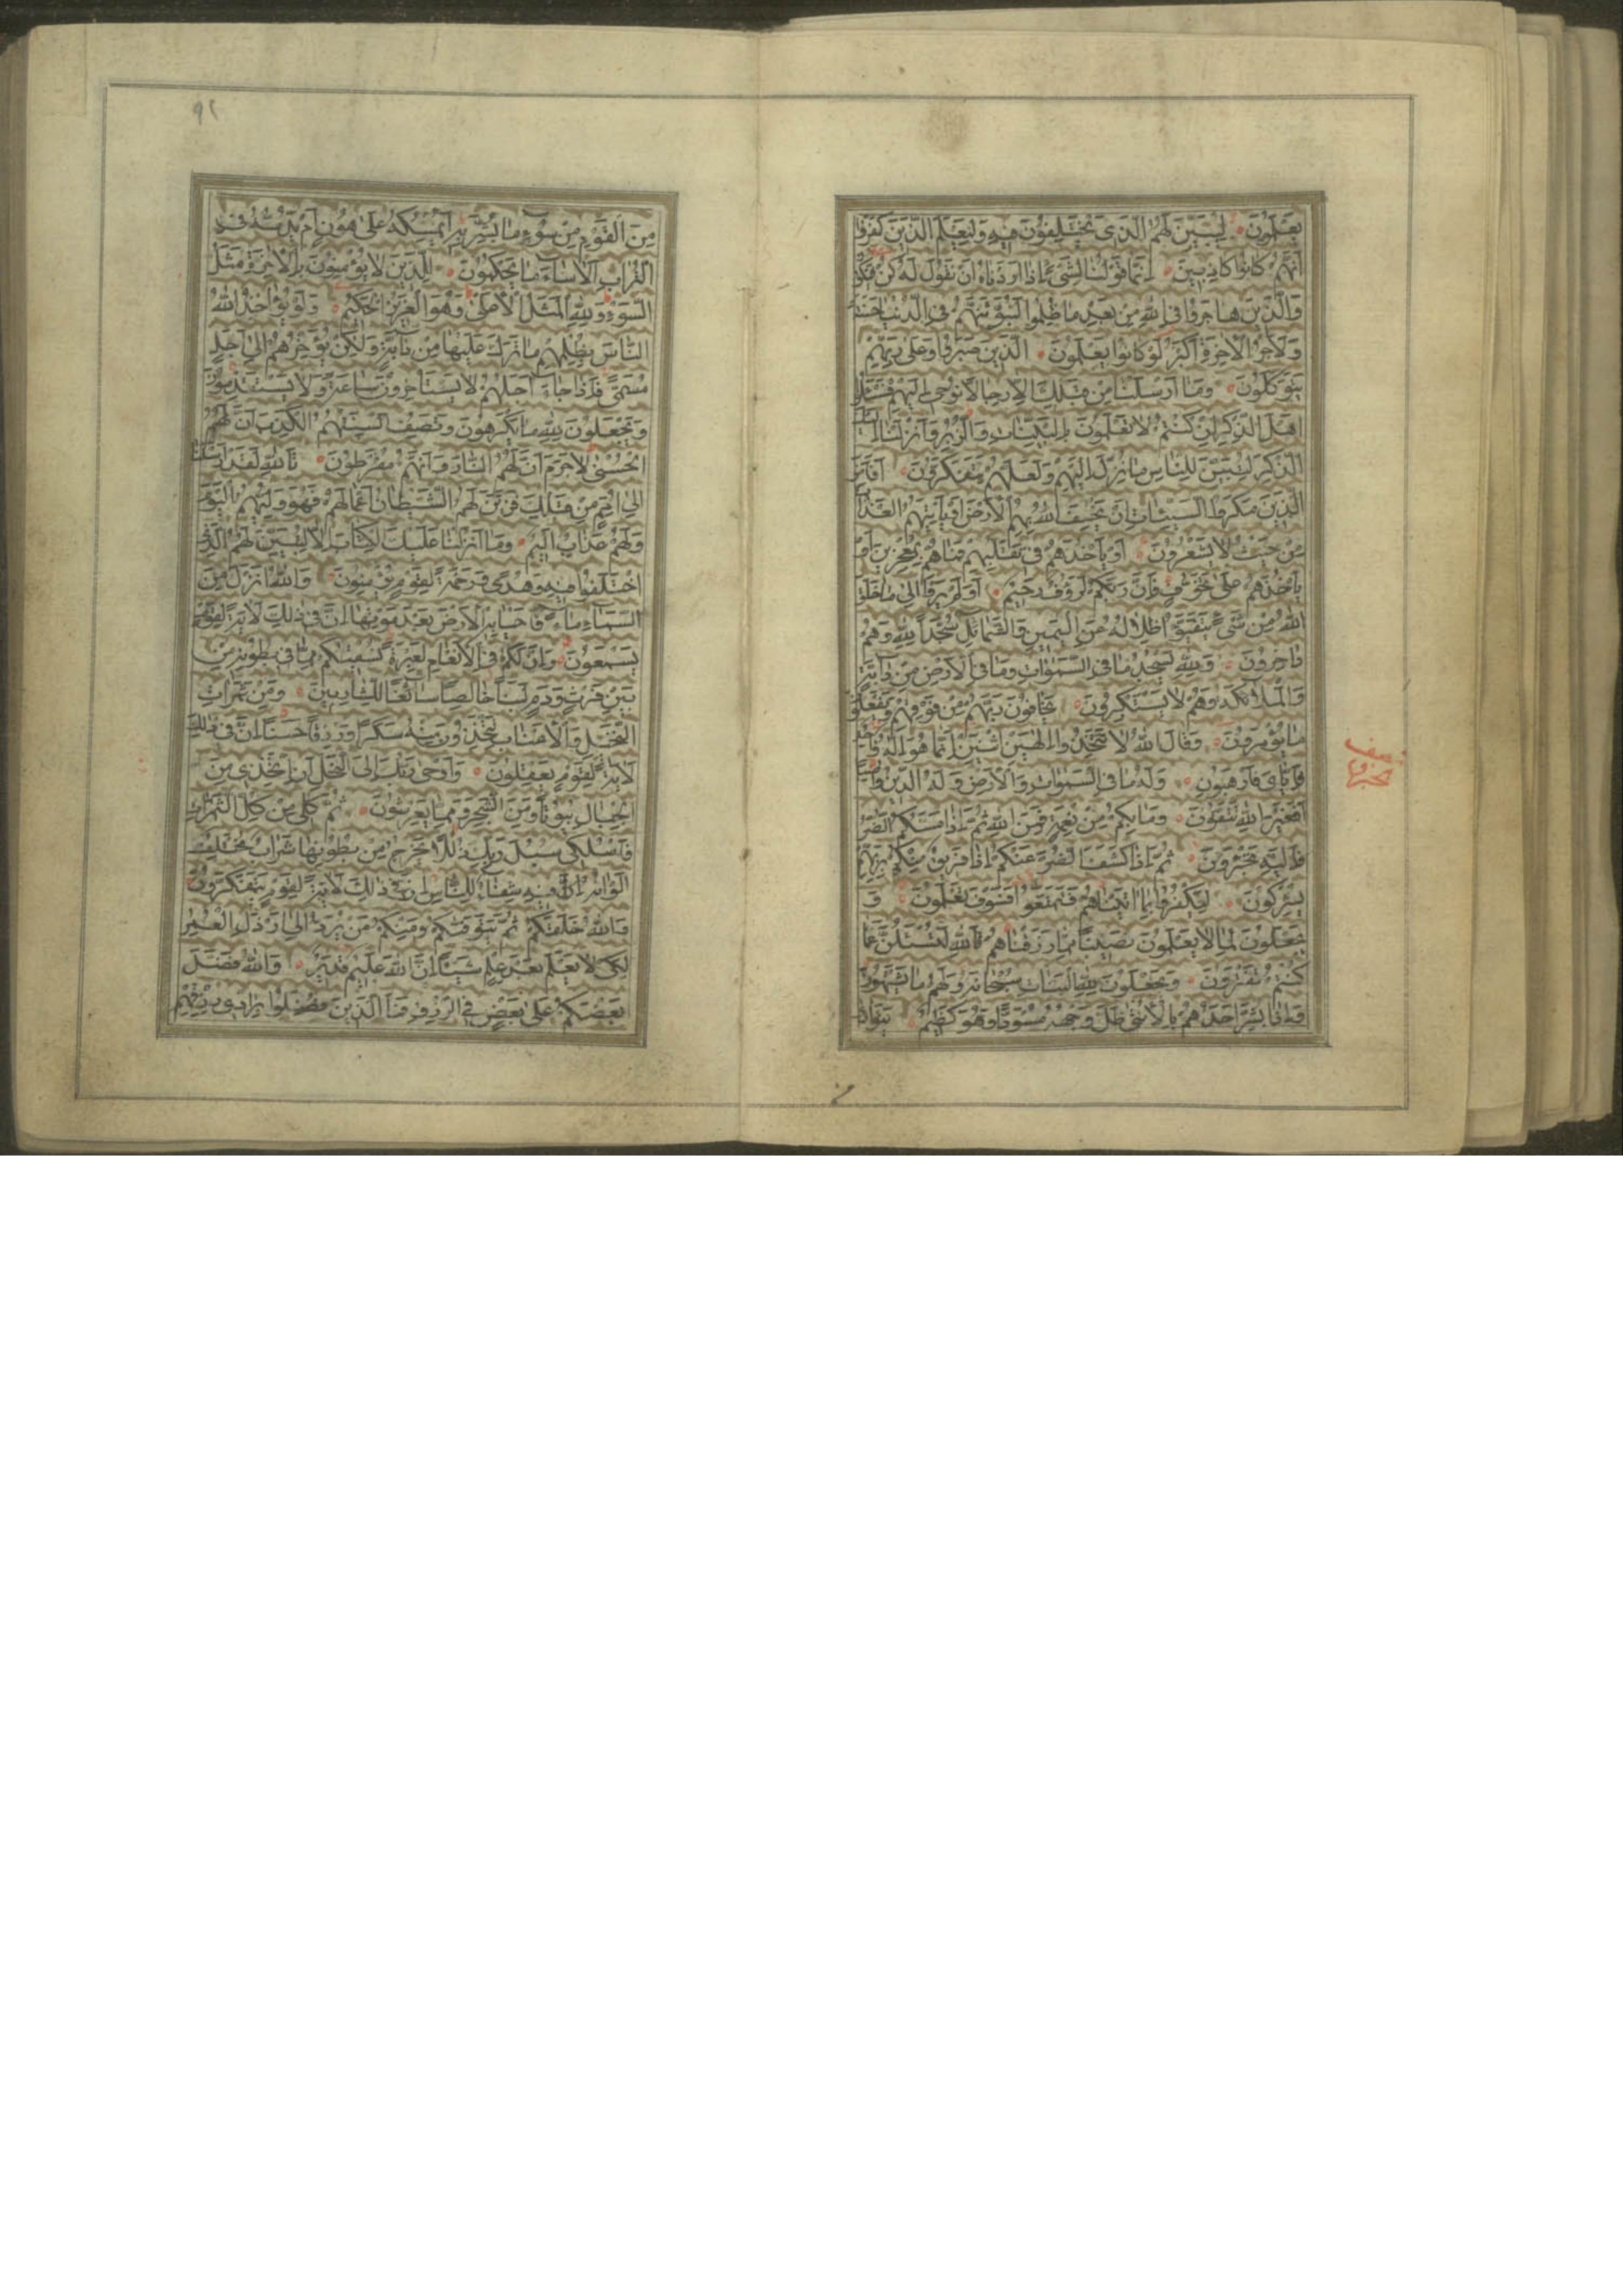 يَعْلَمُونَ لِيُبَيِّنَ لَهُمُ الَّذِي يَخْتَلِفُونَ فِيهِ وَلِيَعْلَمَ الَّذِينَ كَفَرُوا
أَنَّهُمْ كَانُوا كَاذِبِينَ إِنَّمَا قَوْلُنَا لِشَيْءٍ إِذَا أَرَدْنَاهُ أَنْ نَقُولَ لَهُ كُنْ فَيَكُونُ
وَالَّذِينَ هَاجَرُوا فِي اللَّهِ مِنْ بَعْدِ مَا ظُلِمُوا لَنُبَوِّئَنَّهُمْ فِي الدُّنْيَا حَسَنَةً
وَلَأَجْرُ الْآخِرَةِ أَكْبَرُ لَوْ كَانُوا يَعْلَمُونَ الَّذِينَ صَبَرُوا وَعَلَى رَبِّهِمْ
يَتَوَكَّلُونَ وَمَا أَرْسَلْنَا مِنْ قَبْلِكَ إِلَّا رِجَالًا نُوحِي إِلَيْهِمْ فَسْئَلُوا
أَهْلَ الذِّكْرِ إِنْ كُنْتُمْ لَا تَعْلَمُونَ بِالْبَيِّنَاتِ وَالزُّبُرِ وَأَنْزَلْنَا إِلَيْكَ
الذِّكْرَ لِتُبَيِّنَ لِلنَّاسِ مَا نُزِّلَ إِلَيْهِمْ وَلَعَلَّهُمْ يَتَفَكَّرُونَ أَفَأَمِنَ
الَّذِينَ مَكَرُوا السَّيِّئَاتِ أَنْ يَخْسِفَ اللَّهُ بِهِمُ الْأَرْضَ أَوْ يَأْتِيَهُمُ الْعَذَابُ
مِنْ حَيْثُ لَا يَشْعُرُونَ أَوْ يَأْخُذَهُمْ فِي تَقَلُّبِهِمْ فَمَا هُمْ بِمُعْجِزِينَ أَوْ
يَأْخُذَهُمْ عَلَى تَخَوُّفٍ فَإِنَّ رَبَّكُمْ لَرَؤُفٌ رَحِيمٌ أَوَلَمْ يَرَوْا إِلَى مَا خَلَقَ
اللَّهُ مِنْ شَيْءٍ يَتَفَيَّؤُا ظِلَالُهُ عَنِ الْيَمِينِ وَالشَّمَائِلِ سُجَّدًا لِلَّهِ وَهُمْ
دَاخِرُونَ وَلِلَّهِ يَسْجُدُ مَا فِي السَّمَوَاتِ وَمَا فِي الْأَرْضِ مِنْ دَابَّةٍ
وَالْمَلَائِكَةُ وَهُمْ لَا يَسْتَكْبِرُونَ يَخَافُونَ رَبَّهُمْ مِنْ فَوْقِهِمْ وَيَفْعَلُونَ
مَا يُؤْمَرُونَ وَقَالَ اللَّهُ لَا تَتَّخِذُوا إِلَهَيْنِ اثْنَيْنِ إِنَّمَا هُوَ إِلَهٌ وَاحِدٌ
فَإِيَّايَ فَارْهَبُونِ وَلَهُ مَا فِي السَّمَوَاتِ وَالْأَرْضِ وَلَهُ الدِّينُ وَاصِبًا
أَفَغَيْرَ اللَّهِ تَتَّقُونَ وَمَا بِكُمْ مِنْ نِعْمَةٍ فَمِنَ اللَّهِ ثُمَّ إِذَا مَسَّكُمُ الضُّرُّ
فَإِلَيْهِ تَجْئَرُونَ ثُمَّ إِذَا كَشَفَ الضُّرَّ عَنْكُمْ إِذَا فَرِيقٌ مِنْكُمْ بِرَبِّهِمْ
يُشْرِكُونَ لِيَكْفُرُوا بِمَا آتَيْنَاهُمْ فَتَمَتَّعُوا فَسَوْفَ تَعْلَمُونَ وَ
يَجْعَلُونَ لِمَا لَا يَعْلَمُونَ نَصِيبًا مِمَّا رَزَقْنَاهُمْ تَاللَّهِ لَتُسْئَلُنَّ عَمَّا
كُنْتُمْ تَفْتَرُونَ وَيَجْعَلُونَ لِلَّهِ الْبَنَاتِ سُبْحَانَهُ وَلَهُمْ مَا يَشْتَهُونَ
وَإِذَا بُشِّرَ أَحَدُهُمْ بِالْأُنْثَى ظَلَّ وَجْهُهُ مُسْوَدًّا وَهُوَ كَظِيمٌ يَتَوَارَى
٩٢
مِنَ الْقَوْمِ مِنْ سُوءِ مَا بُشِّرَ بِهِ أَيُمْسِكُهُ عَلَى هُونٍ أَمْ يَدُسُّهُ فِي
التُّرَابِ أَلَا سَاءَ مَا يَحْكُمُونَ لِلَّذِينَ لَا يُؤْمِنُونَ بِالْآخِرَةِ مَثَلُ
السَّوْءِ وَلِلَّهِ الْمَثَلُ الْأَعْلَى وَهُوَ الْعَزِيزُ الْحَكِيمُ وَلَوْ يُؤَاخِذُ اللَّهُ
النَّاسَ بِظُلْمِهِمْ مَا تَرَكَ عَلَيْهَا مِنْ دَابَّةٍ وَلَكِنْ يُؤَخِّرُهُمْ إِلَى أَجَلٍ
مُسَمًّى فَإِذَا جَاءَ أَجَلُهُمْ لَا يَسْتَأْخِرُونَ سَاعَةً وَلَا يَسْتَقْدِمُونَ
وَيَجْعَلُونَ لِلَّهِ مَا يَكْرَهُونَ وَتَصِفُ أَلْسِنَتُهُمُ الْكَذِبَ أَنَّ لَهُمُ
الْحُسْنَى لَا جَرَمَ أَنَّ لَهُمُ النَّارَ وَأَنَّهُمْ مُفْرَطُونَ تَاللَّهِ لَقَدْ أَرْسَلْنَا
إِلَى أُمَمٍ مِنْ قَبْلِكَ فَزَيَّنَ لَهُمُ الشَّيْطَانُ أَعْمَالَهُمْ فَهُوَ وَلِيُّهُمُ الْيَوْمَ
وَلَهُمْ عَذَابٌ أَلِيمٌ وَمَا أَنْزَلْنَا عَلَيْكَ الْكِتَابَ إِلَّا لِتُبَيِّنَ لَهُمُ الَّذِي
اخْتَلَفُوا فِيهِ وَهُدًى وَرَحْمَةً لِقَوْمٍ يُؤْمِنُونَ وَاللَّهُ أَنْزَلَ مِنَ
السَّمَاءِ مَاءً فَأَحْيَا بِهِ الْأَرْضَ بَعْدَ مَوْتِهَا إِنَّ فِي ذَلِكَ لَآيَةً لِقَوْمٍ
يَسْمَعُونَ وَإِنَّ لَكُمْ فِي الْأَنْعَامِ لَعِبْرَةً نُسْقِيكُمْ مِمَّا فِي بُطُونِهِ مِنْ
بَيْنِ فَرْثٍ وَدَمٍ لَبَنًا خَالِصًا سَائِغًا لِلشَّارِبِينَ وَمِنْ ثَمَرَاتِ
النَّخِيلِ وَالْأَعْنَابِ تَتَّخِذُونَ مِنْهُ سَكَرًا وَرِزْقًا حَسَنًا إِنَّ فِي ذَلِكَ
لَآيَةً لِقَوْمٍ يَعْقِلُونَ وَأَوْحَى رَبُّكَ إِلَى النَّحْلِ أَنِ اتَّخِذِي مِنَ
الْجِبَالِ بُيُوتًا وَمِنَ الشَّجَرِ وَمِمَّا يَعْرِشُونَ ثُمَّ كُلِي مِنْ كُلِّ الثَّمَرَاتِ
فَاسْلُكِي سُبُلَ رَبِّكِ ذُلُلًا يَخْرُجُ مِنْ بُطُونِهَا شَرَابٌ مُخْتَلِفٌ
أَلْوَانُهُ فِيهِ شِفَاءٌ لِلنَّاسِ إِنَّ فِي ذَلِكَ لَآيَةً لِقَوْمٍ يَتَفَكَّرُونَ
وَاللَّهُ خَلَقَكُمْ ثُمَّ يَتَوَفَّكُمْ وَمِنْكُمْ مَنْ يُرَدُّ إِلَى أَرْذَلِ الْعُمُرِ
لِكَيْ لَا يَعْلَمَ بَعْدَ عِلْمٍ شَيْئًا إِنَّ اللَّهَ عَلِيمٌ قَدِيرٌ وَاللَّهُ فَضَّلَ
بَعْضَكُمْ عَلَى بَعْضٍ فِي الرِّزْقِ فَمَا الَّذِينَ فُضِّلُوا بِرَادِّي رِزْقِهِمْ